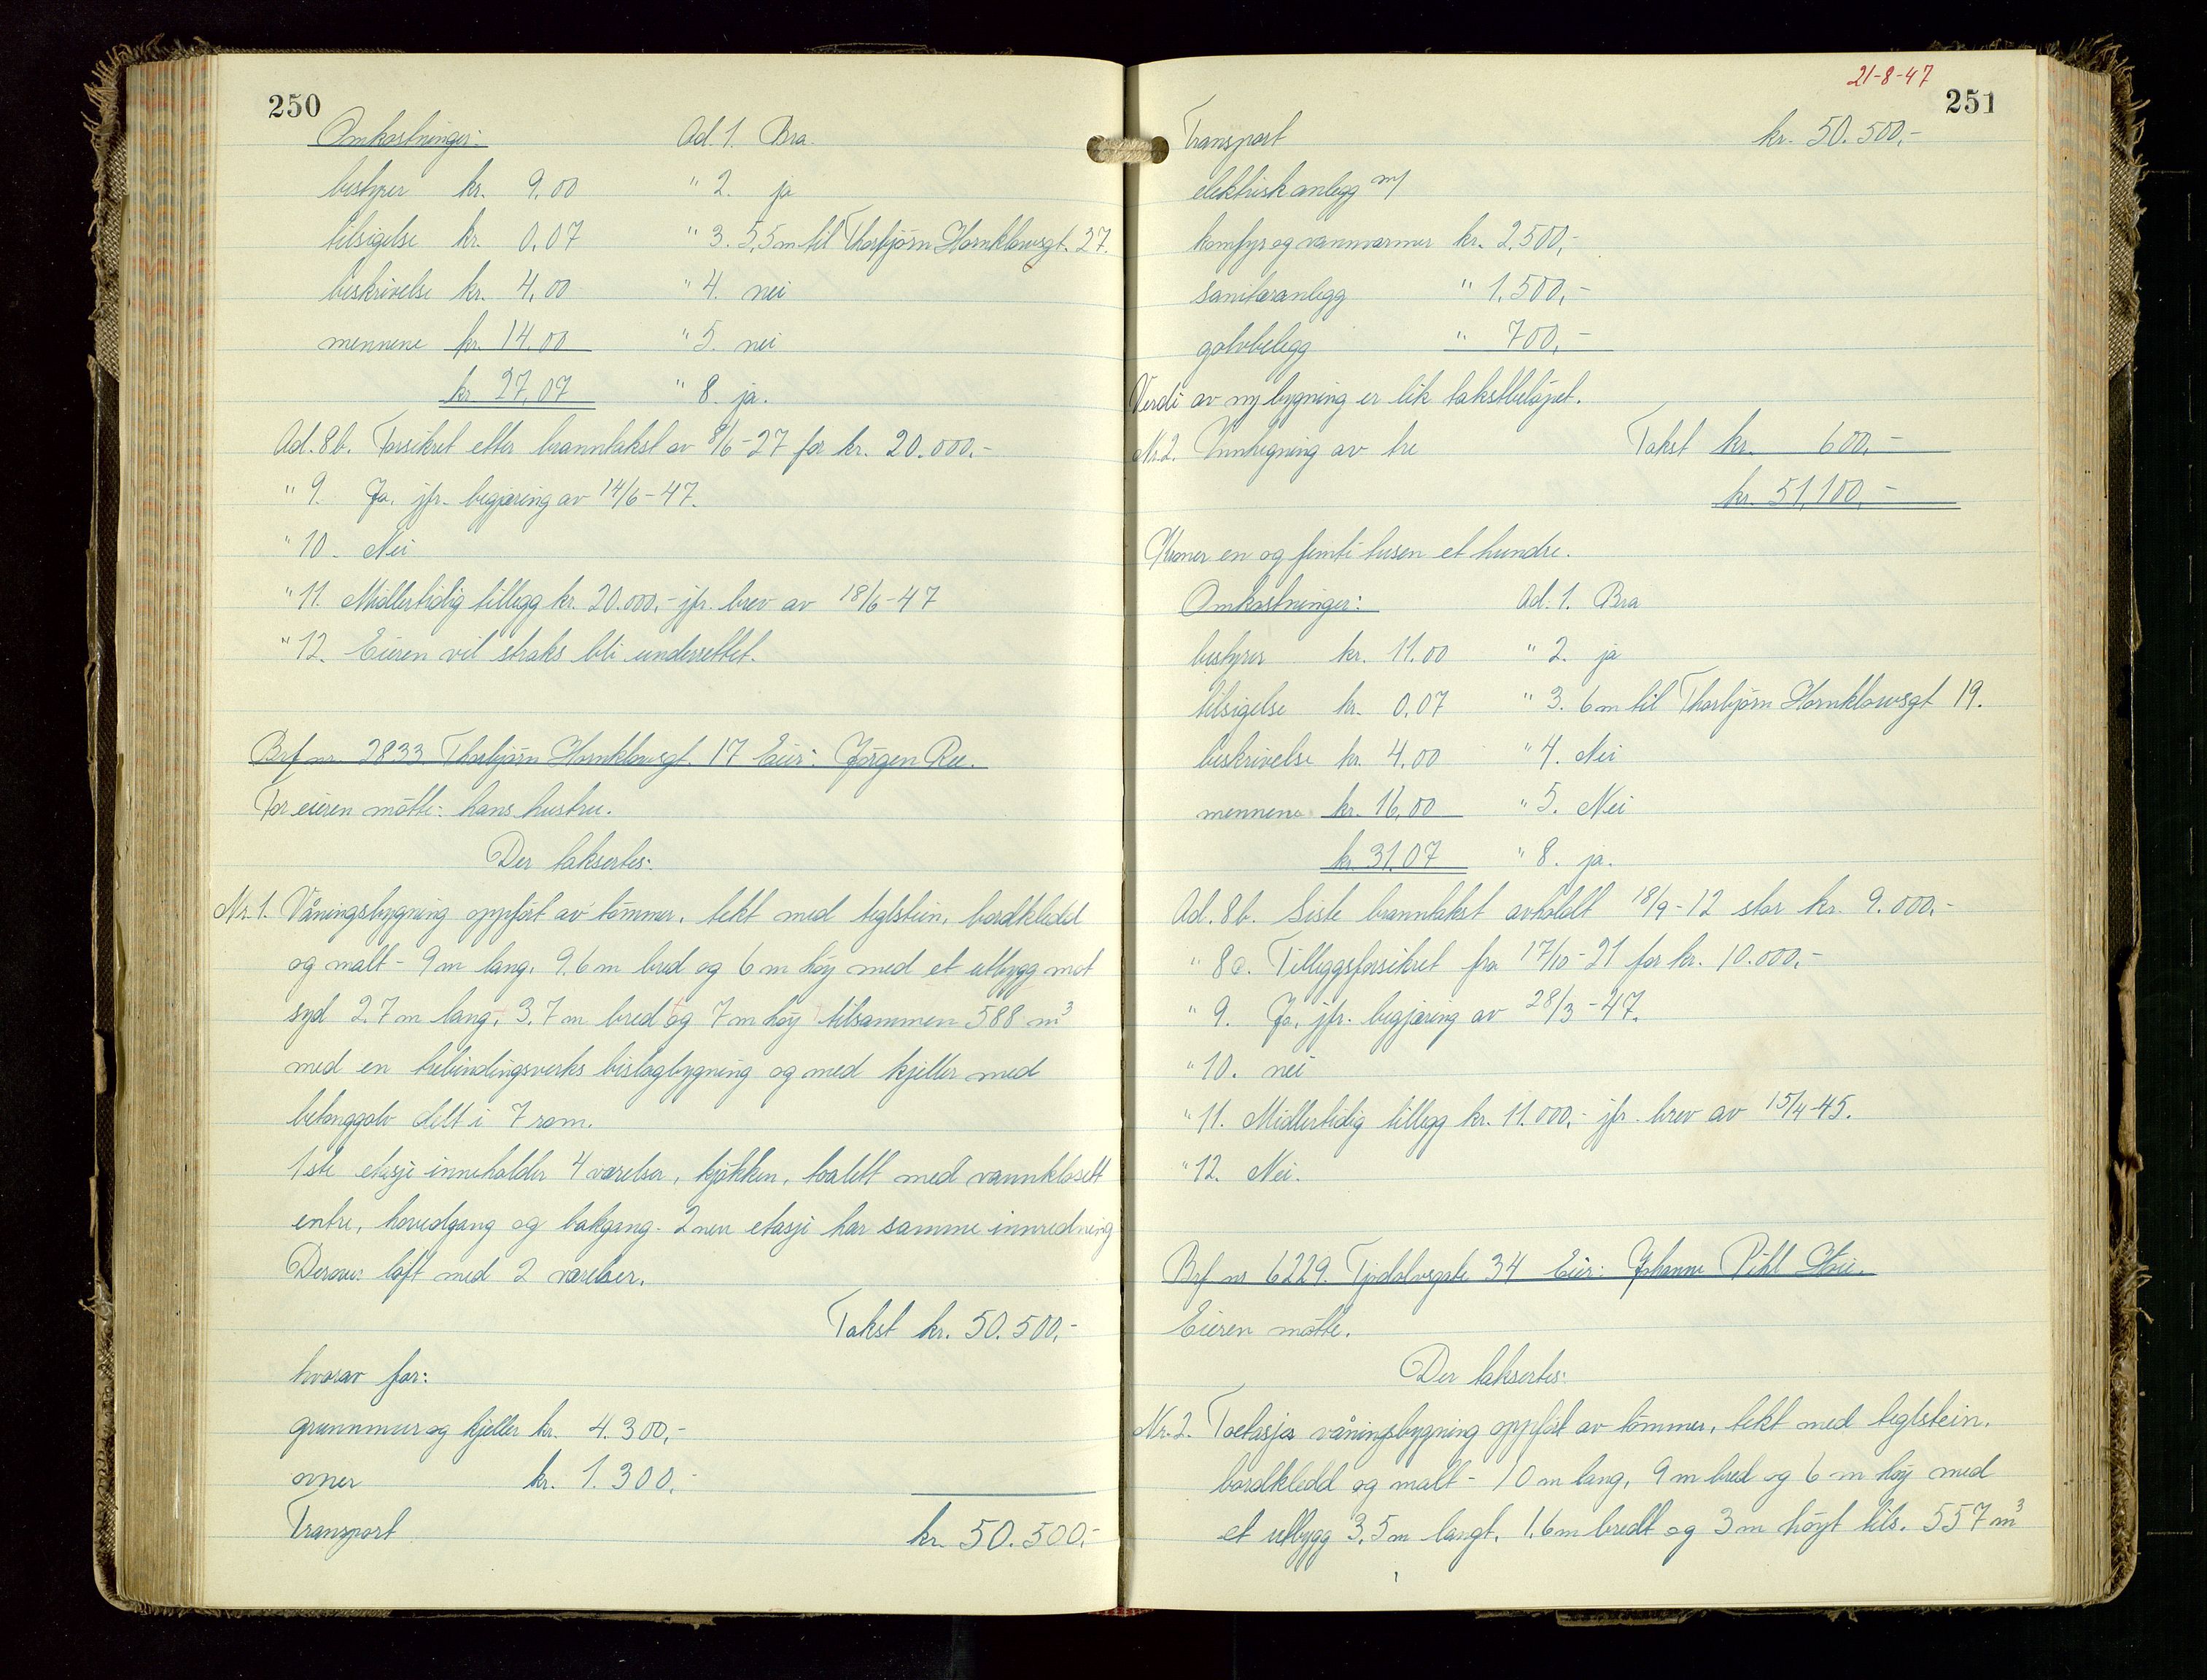 250
Omkostninger: Ad. 1. Bra.
bestyrer kr. 9,00 " 2. ja
tilsigelse kr. 0.07 " 3. 5,5m til Thorbjörn Hornklowsgt. 27.
beskrivelse kr. 4,00 " 4. nei
mennene kr. 14.00 " 5. nei
kr 27,07 " 8. ja.
Ad. 8b. Forsikret etter branntakst av 8/6-27 for kr. 20.000.-
" 9. Ja, jfr. begjæring av 14/6-47.
" 10 - Nei
" 11. Midlertidig tillegg kr. 20.000,- jfr. brev av 18/6-47
" 12. Eieren vil straks bli undersettet.
Brf nr 2833 Thorbjörn Hornklowsgt. 17 Eier: Jörgen Ree.
For eieren mötte: hans hustru.
Der taksertes:
Nr. 1. Våningsbygning oppfört av tömmer, tekt med teglstein, bordkledd
og malt - 9m lang, 9.6m bred og 6m höy med et utbygg mot
syd 2.7m lang, 3.7m bred og 7m höy tilsammen 588 m³
med en trebindingsverks bislagbygning og med kjeller med
betonggolv delt i 7 rom.
1ste etasje inneholder 4 værelser, kjökken, toalett med vannklosett
entre, hovedgang og bakgang. 2nen etasje har samme innredning
Derover löft med 2 værelser.
Takst kr. 50.500,-
hvorav for:
grunnmur og kjeller kr. 4.300,-
ovner kr. 1.300,-
Transport kr. 50.500.-
21-8-47
251
Transport kr. 50.500,-
elektrisk anlegg m/
komfyr og vannvarmer kr. 2.500,-
sanitæranlegg " 1.500,-
golvbelegg " 700,-
Verdi av ny bygning er lik takstbelöpet.
Nr. 2. Innhegning av tre Takst kr. 600,-
kr. 51,100,-
Kroner en og femti tusen et hundre.
Omkostninger: Ad. 1. Bra
bestyrer kr. 11.00 " 2. ja
tilsigelse kr. 0.07 " 3. 6m til Thorbjörn Hornklowsgt 19.
beskrivelse kr. 4.00 " 4. Nei
mennene kr. 16,00 " 5. Nei
kr. 31.07 " 8. ja.
Ad. 8b. Siste branntakst avholdt 18/9-12 stor kr. 9.000,-
" 8c. Tilleggsforsikret fra 17/10-21 for kr. 10.000,-
" 9. Ja, jfr. begjæring av 28/3-47.
" 10. nei
" 11. Midlertidig tillegg kr. 11.000,- jfr. brev av 15/4-45.
" 12. Nei.
Brf nr 6229. Tjodolvsgate 34 Eier: Johanne Pihl
Eieren mötte.
Der taksertes:
Nr. 2. Toetasjes våningsbygning oppfört av tömmer, tekt med teglstein,
bordkledd og malt - 10m lang, 9m bred og 6m höy med
et utbygg 3.5m langt, 1.6m bredt og 3m höyt tils. 557m³